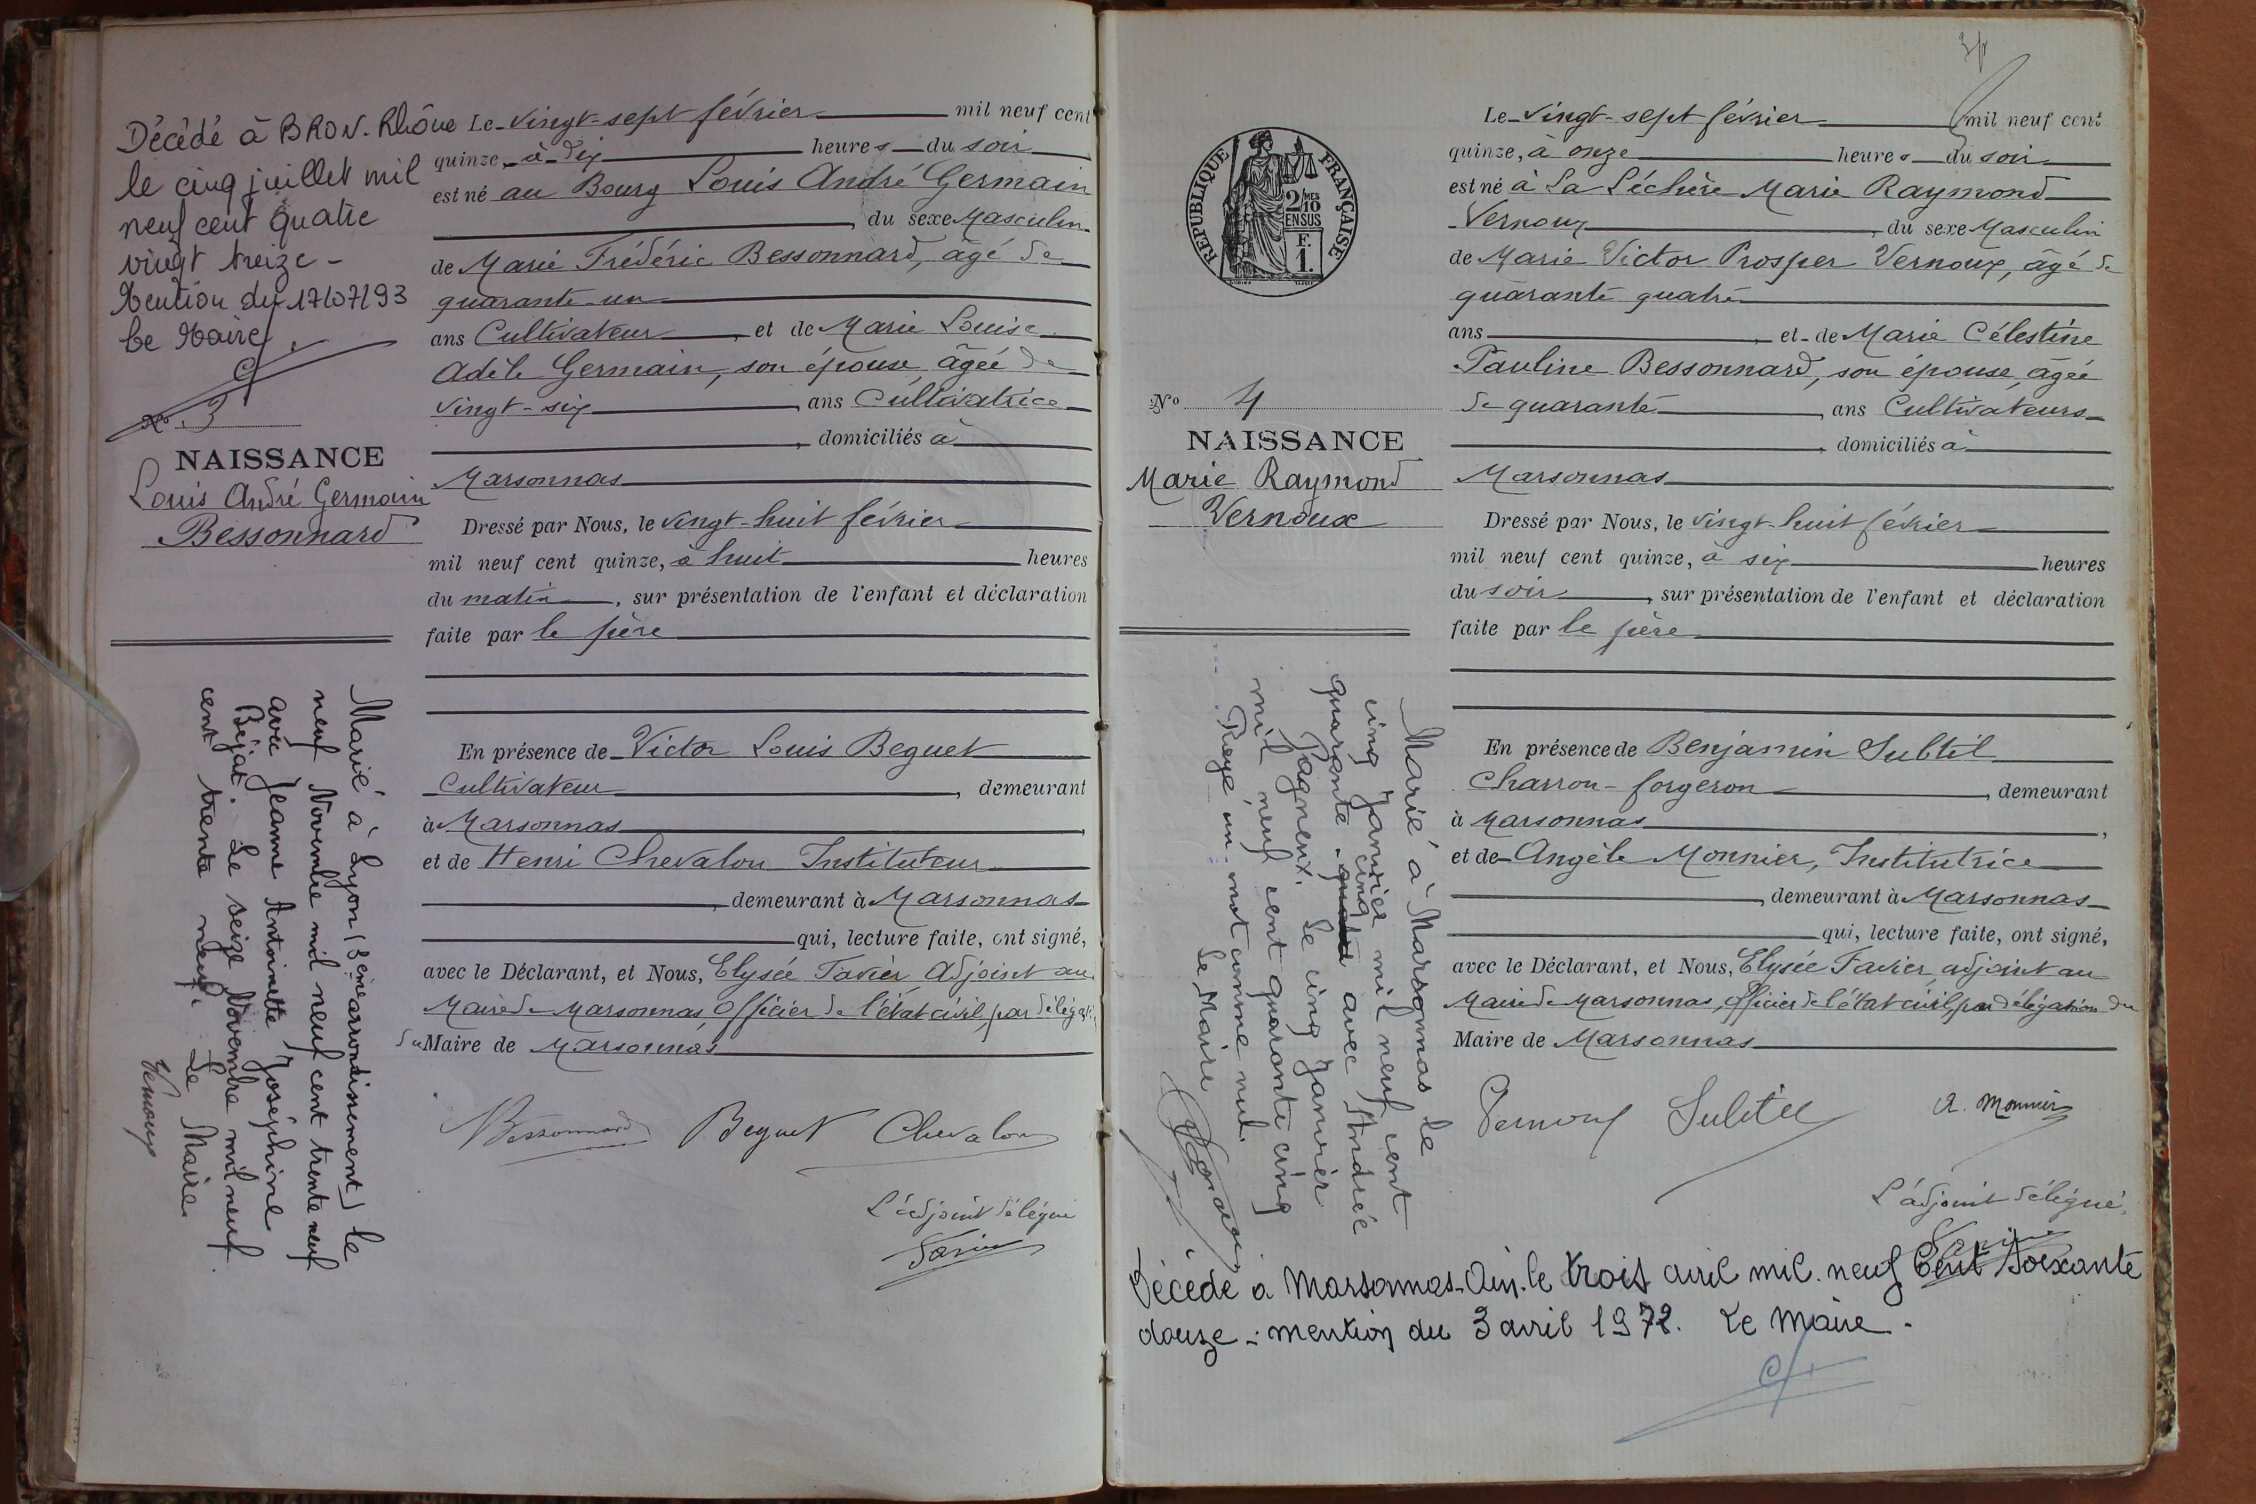 Décédé à BRON. Rhône
le cinq juillet mil
neuf cent quatre
vingt treize -
Mention du 17/07/93
Le Maire,
No. 3
NAISSANCE
Louis André Germain
Bessonnard
Marié à Lyon (8ème arrondissement) le
neuf Novembre mil neuf cent trente neuf
avec Jeanne Antoinette Joséphine
Béjat. Le seize Novembre mil neuf
cent trente neuf. Le Maire.
Vernoux
Le vingt-sept février mil neuf cent
quinze, à dix heures du soir
est né au Bourg Louis André Germain
, du sexe Masculin
de Marie Frédéric Bessonnard, âgé de
quarante-un
ans Cultivateur, et de Marie Louise
Adèle Germain, son épouse, âgée de
vingt-six, ans Cultivatrice
, domiciliés à
Marsonnas
Dressé par Nous, le vingt-huit février
mil neuf cent quinze, à huit heures
du matin, sur présentation de l'enfant et déclaration
faite par le père
En présence de Victor Louis Beguet
Cultivateur, demeurant
à Marsonnas,
et de Henri Chevalon Instituteur
, demeurant à Marsonnas
qui, lecture faite, ont signé,
avec le Déclarant, et Nous, Elysée Favier Adjoint au
Maire de Marsonnas, Officier de l'état civil, par délégation
du Maire de Marsonnas
Bessonnard Beguet Chevalon
L'adjoint délégué
Favier
REPUBLIQUE FRANÇAISE
2/10 MES
EN SUS
F.
1.
No 4
NAISSANCE
Marie Raymond
Vernoux
Marié à Marsonnas le
cinq Janvier mil neuf cent
quarante cinq avec Andrée
Pagneux. Le cinq Janvier
mil neuf cent quarante cinq
Rayé un mot comme nul.
Le Maire
Le vingt-sept février mil neuf cent
quinze, à onze heures du soir
est né à La Léchère Marie Raymond
Vernoux, du sexe Masculin
de Marie Victor Prosper Vernoux, âgé de
quarante quatre
ans, et de Marie Célestine
Pauline Bessonnard, son épouse, âgée
de quarante, ans Cultivateurs
, domiciliés à
Marsonnas
Dressé par Nous, le vingt-huit février
mil neuf cent quinze, à six heures
du soir, sur présentation de l'enfant et déclaration
faite par le père
En présence de Benjamin Subtil
Charron-forgeron, demeurant
à Marsonnas,
et de Angèle Monnier, Institutrice
, demeurant à Marsonnas
qui, lecture faite, ont signé,
avec le Déclarant, et Nous, Elysée Favier, adjoint au
Maire de Marsonnas, Officier de l'état civil, par délégation du
Maire de Marsonnas
Vernoux Subtil A. Monnier
L'adjoint délégué,
Favier
Décédé à Marsonnas-Ain. le trois avril mil. neuf Cent soixante
douze -: mention du 3 avril 1972. Le Maire -